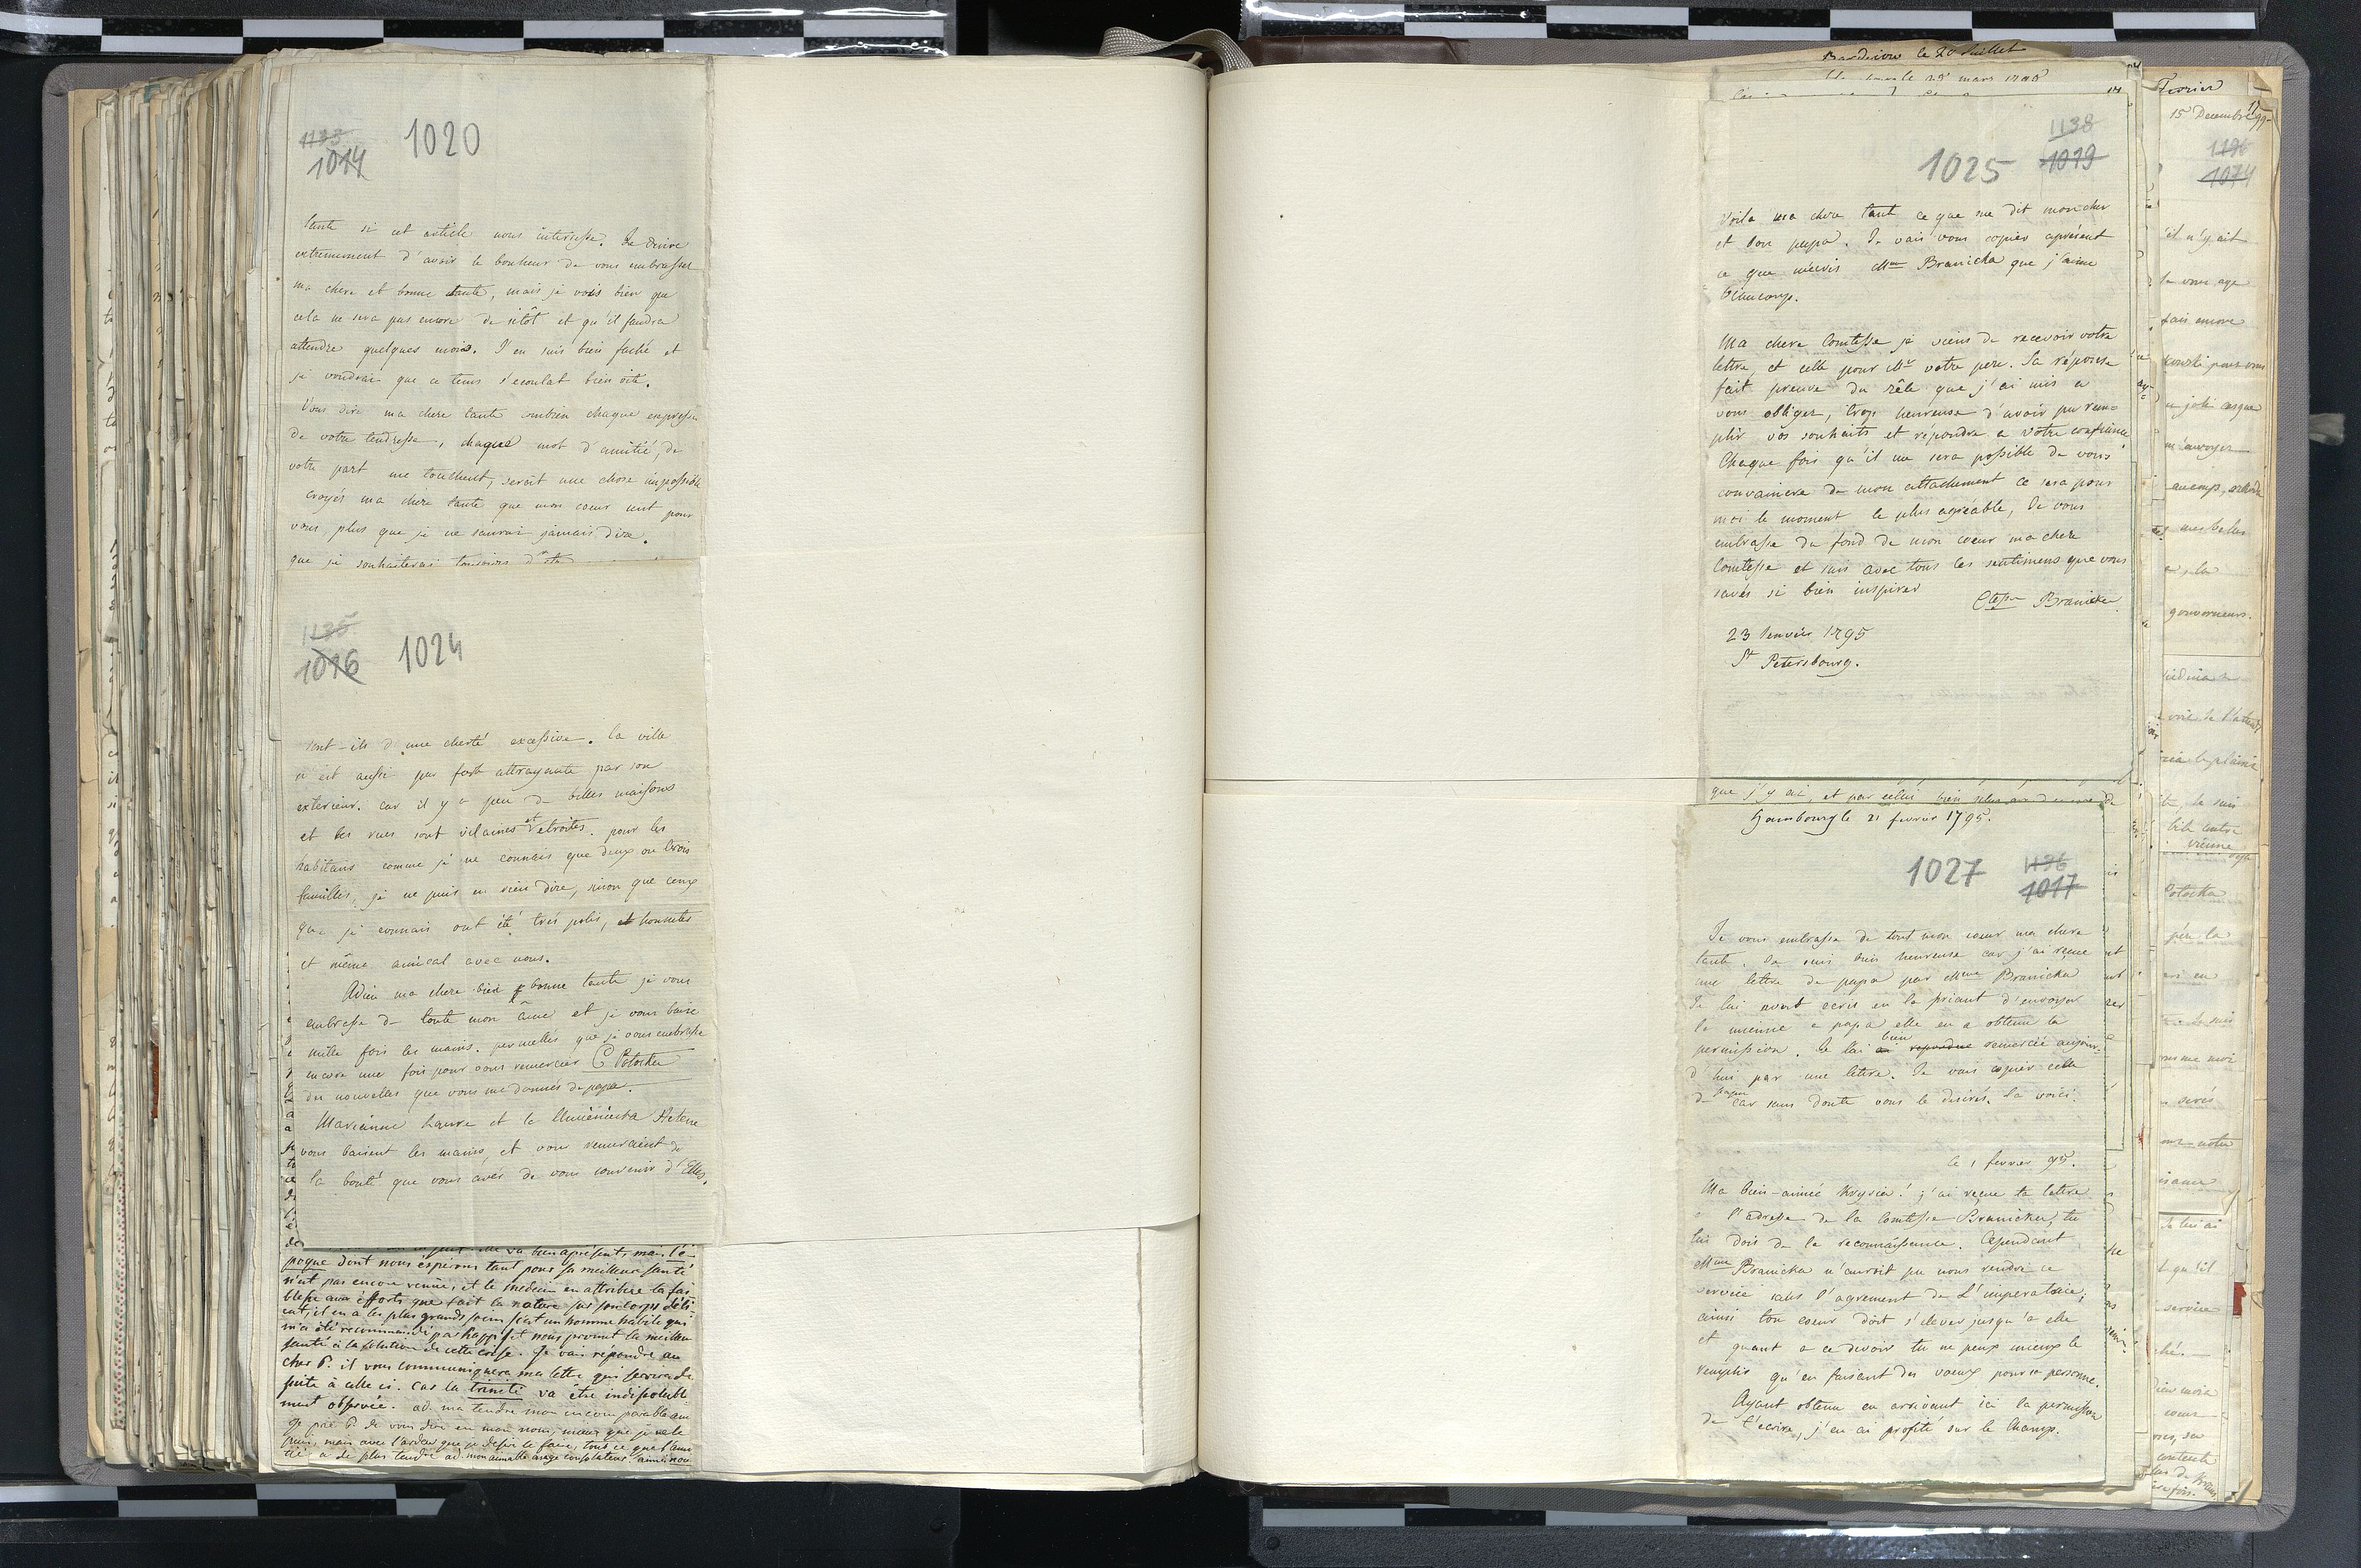 1133
1014
1020
tante si cet article vous interesse. Je desire
extremement d'avoir le bonheur de vous embrasser
ma chere et bonne tante, mais je vois bien que
cela ne sera pas encore de sitôt et qu'il faudra
attendre quelques mois. J'en suis bien faché et
je voudrai que ce tems s'ecoulat bien vite.
Vous dire ma chere tante combien chaque expression
de votre tendresse, chaque mot d'amitié, de
votre part me touchent, seroit une chose impossible
croyés ma chere tante que mon coeur sent pour
vous plus que je ne saurai jamais dire.
que je souhaiterai toujours
1135
1016
1024
sont-ils d'une cherté excessive. La ville
n'est aussi pas fort attrayante par son
exterieur. car il y a peu de belles maisons
et les rues sont vilaines et etroites. pour les
habitans comme je ne connais que deux ou trois
familles, je ne puis en rien dire, sinon que ceux
que je connais ont été trés polis, et honnetes
et même amical avec nous.
Adieu ma chere bien bonne tante je vous
embrasse de toute mon âme et je vous baise
mille fois les mains. permettés que je vous embrasse
encore une fois pour vous remercier C Potocka
des nouvelles que vous me donnés de papa.
Marianne Laure et la Helene
vous baisent les mains, et vous remercient de
la bonté que vous avés de vous souvenir d'Elles.
va bien apresent, mais l'é-
poque dont nous esperons tant pour sa meilleure santé
n'est pas encore venüe, et le medecin en attribue la fai
blesse aux efforts que fait la nature sur son corps déli-
cat, il en a les plus grands soins c'est un homme habile qui
m'a été recommandé par et nous promet la meilleure
santé à la solution de cette crise. Je vais répondre au
cher P. il vous communiquera ma lettre qui servira de
suite à celle ci. Car la trinité va être indissoluble
ment observée. ad. ma tendre mon incomparable am
Je prie P. de vous dire en mon nom, mieux que je ne le
puis, mais avec l'ardeur que je desire le faire, tout ce que l'ami
tié a de plus tendre ad. mon aimable ange consolateur
Bardiow le 20 Juillet
le 25 mars 1795
1138
1019
1025
Voila ma chere tant ce que me dit mon cher
et bon papa. Je vais vous copier apresent
ce que m'ecris Mme Branicka que j'aime
beaucoup.
Ma chere Comtesse je viens de recevoir votre
lettre, et celle pour Mr votre pere. Sa réponse
fait preuve du zêle que j'ai mis a
vous obliger, trop heureuse d'avoir pu rem=
plir vos souhaits et répondre a votre confiance
Chaque fois qu'il me sera possible de vous
convaincre de mon attachement ce sera pour
moi le moment le plus agréable, Je vous
embrasse du fond de mon coeur ma chere
Comtesse et suis avec tous les sentimens que vous
savés si bien inspirer
Ctesse Branicka
23 Janvier 1795
St Petersbourg.
que j'y ai, et par celui bien plus
Hambourg le 21 fevrier 1795.
1027
1136
1017
Je vous embrasse de tout mon coeur ma chere
tante. Je suis bien heureuse car j'ai reçue
une lettre de papa par Mme Branicka
Je lui avait ecris en la priant d'envoyer
la mienne a papa elle en a obtenu la
permission. Je lai ai repondue bien remercié aujour-
d'hui par une lettre. Je vais copier celle
de papa car sans doute vous le desirés. la voici.
le 1 fevrier 95.
Ma bien-aimée Krysia! j'ai reçue ta lettre
a l'adresse de la Comtesse Branicka, tu
lui dois de la reconnaissance. Cependant
Mme Branicka n'auroit pu nous rendre ce
service sans l'agrement de L'imperatrice;
ainsi ton coeur doit s'elever jusqu'a elle
et quant a ce devoir tu ne peux mieux le
remplir qu'en faisant des voeux pour sa personne.
Ayant obtenu en arrivant ici la permission
de t'ecrire, j'en ai profité sur le champ.
Fevrier
15 Decembre 1799
1196
1074
'il n'y ait
votre age
fais encore
pour vous
joli casque
m'envoyer
mes belles
gouverneurs.
Potocka
comme moi
Je lui ai
qu'il
service
coeur
contente